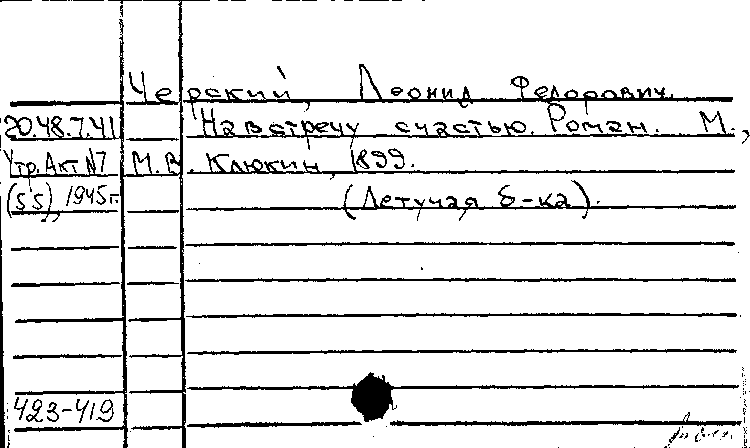 Черский, Леонид Федорович.
20.48.7.41 Навстречу счастью. Роман. М.,
Утр. Акт N7 М.В. Клюкин, 1899.
(55), 1945г. (Летучая б-ка).
423-419